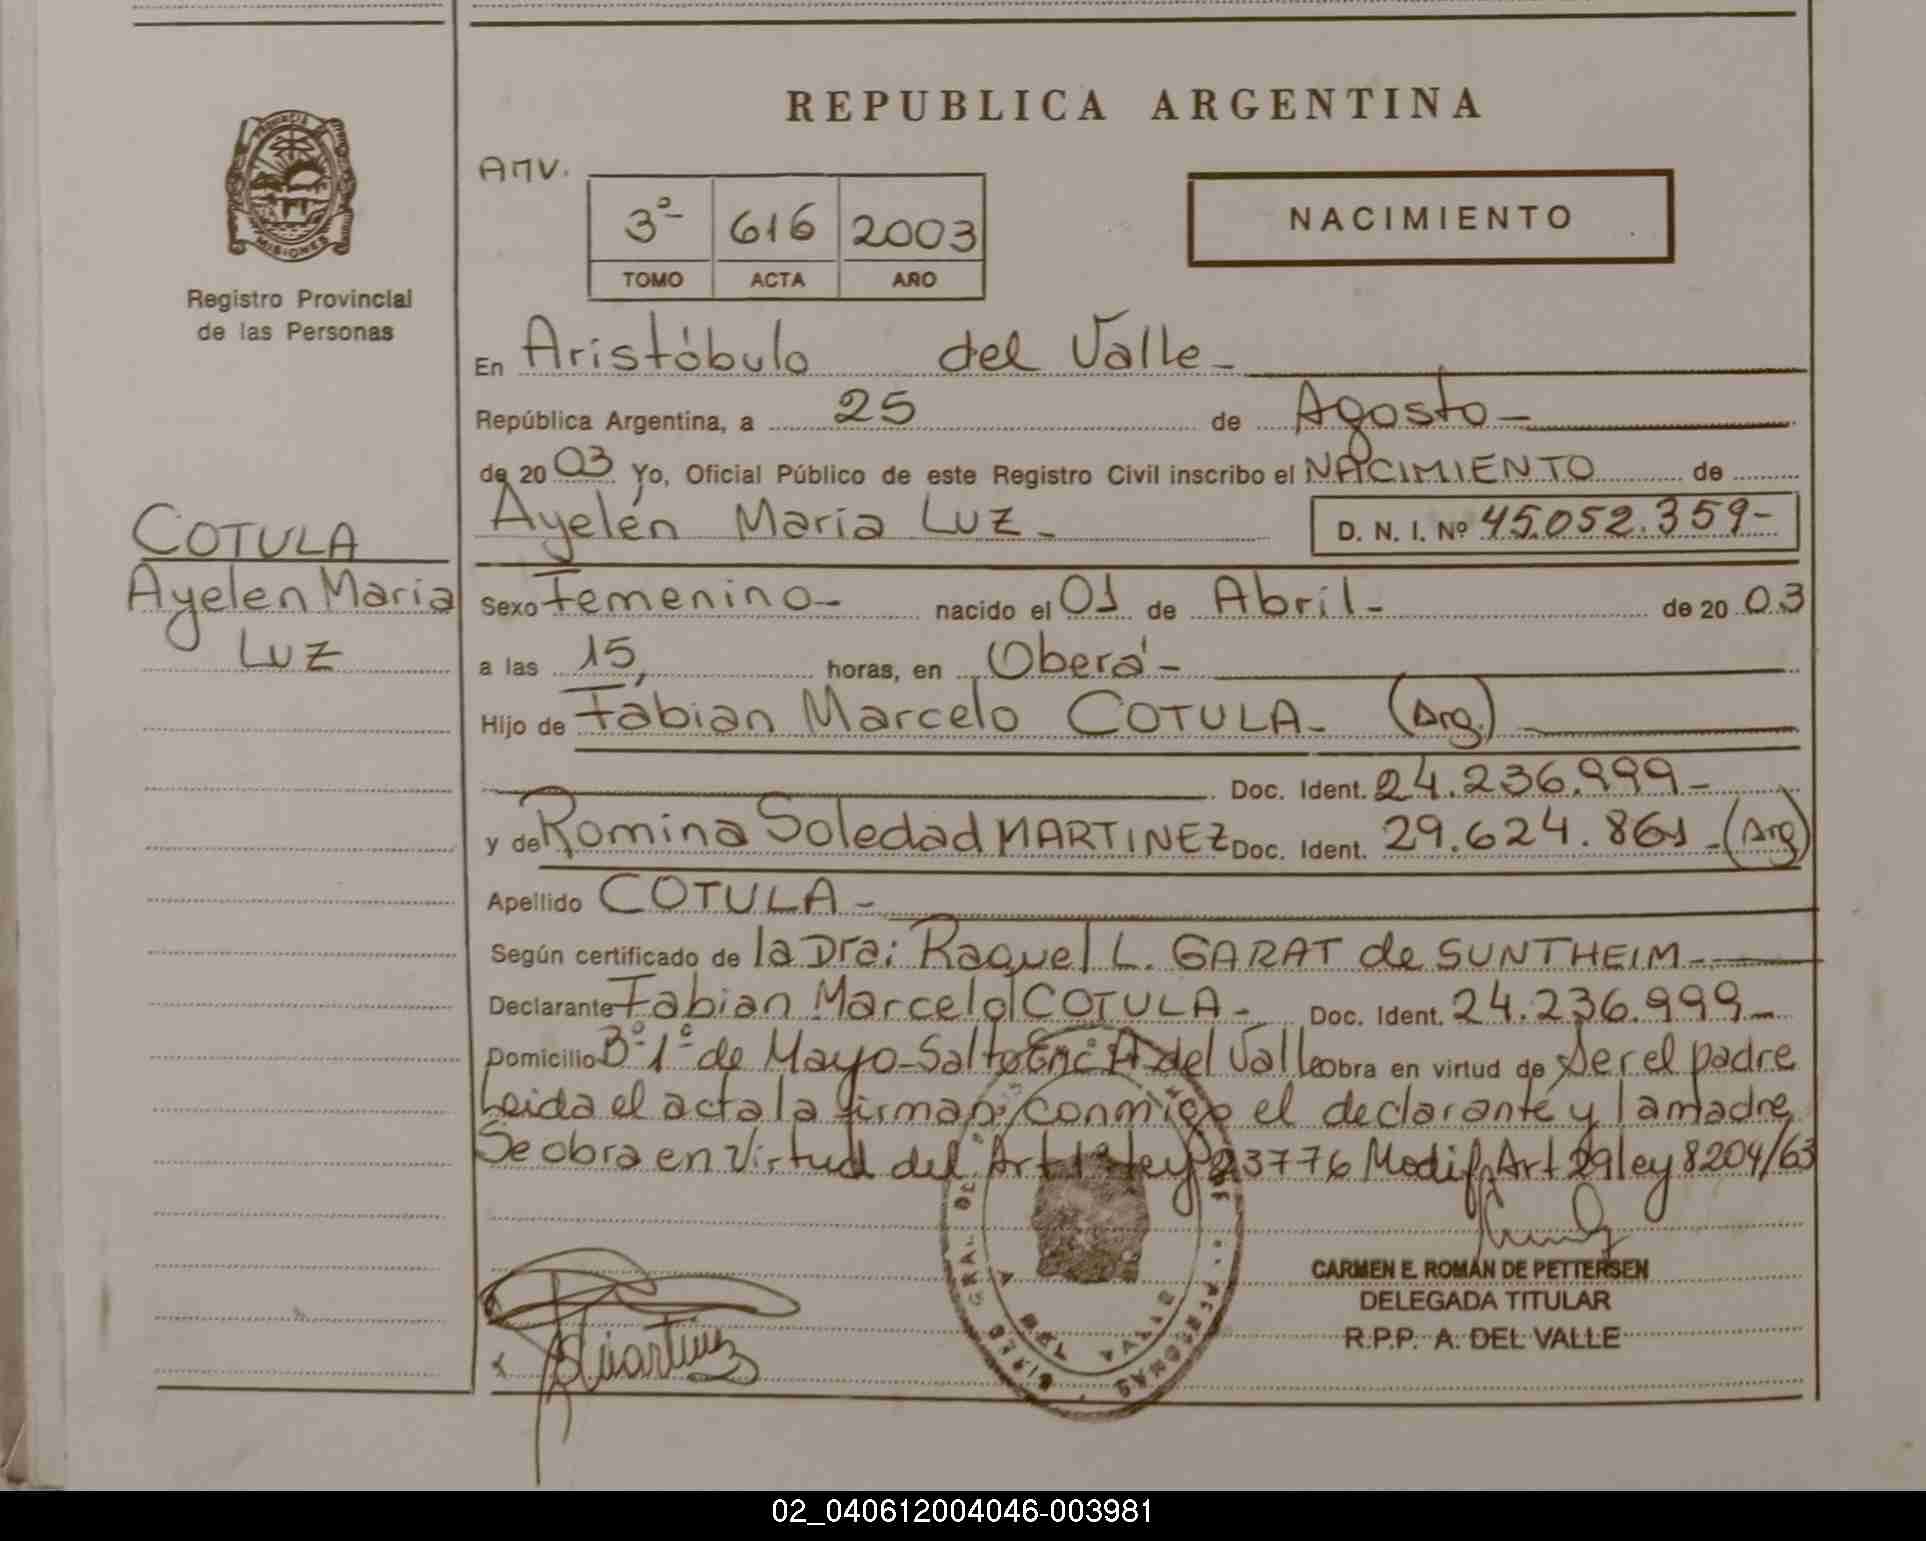 REPUBLICA ARGENTINA
PROVINCIA DE
MISIONES
Registro Provincial
de las Personas
AMV.
3º 616 2003
TOMO ACTA AÑO
NACIMIENTO
En Aristóbulo del Valle-
República Argentina, a 25 de Agosto-
de 2003 Yo, Oficial Público de este Registro Civil inscribo el NACIMIENTO de
Ayelén Maria Luz- D. N. I. Nº 45.052.359-
COTULA
Ayelen Maria
Luz
Sexo Femenino- nacido el 01 de Abril- de 2003
a las 15, horas, en Oberá-
Hijo de Fabian Marcelo COTULA- (Arg.)
Doc. Ident. 24.236.999-
y de Romina Soledad MARTINEZ Doc. Ident. 29.624.861-(Arg)
Apellido COTULA-
Según certificado de la Dra: Raquel L. GARAT de SUNTHEIM-
Declarante Fabian Marcelo COTULA- Doc. Ident. 24.236.999-
Domicilio Bº 1º de Mayo-Salto Encº A del Valle obra en virtud de Ser el padre
Leida el acta la firman conmigo el declarante y la madre
Se obra en Virtud del Art 1º ley 23776 Modif. Art 29 ley 8204/63
CARMEN E. ROMAN DE PETTERSEN
DELEGADA TITULAR
R.P.P. A. DEL VALLE
02_040612004046-003981